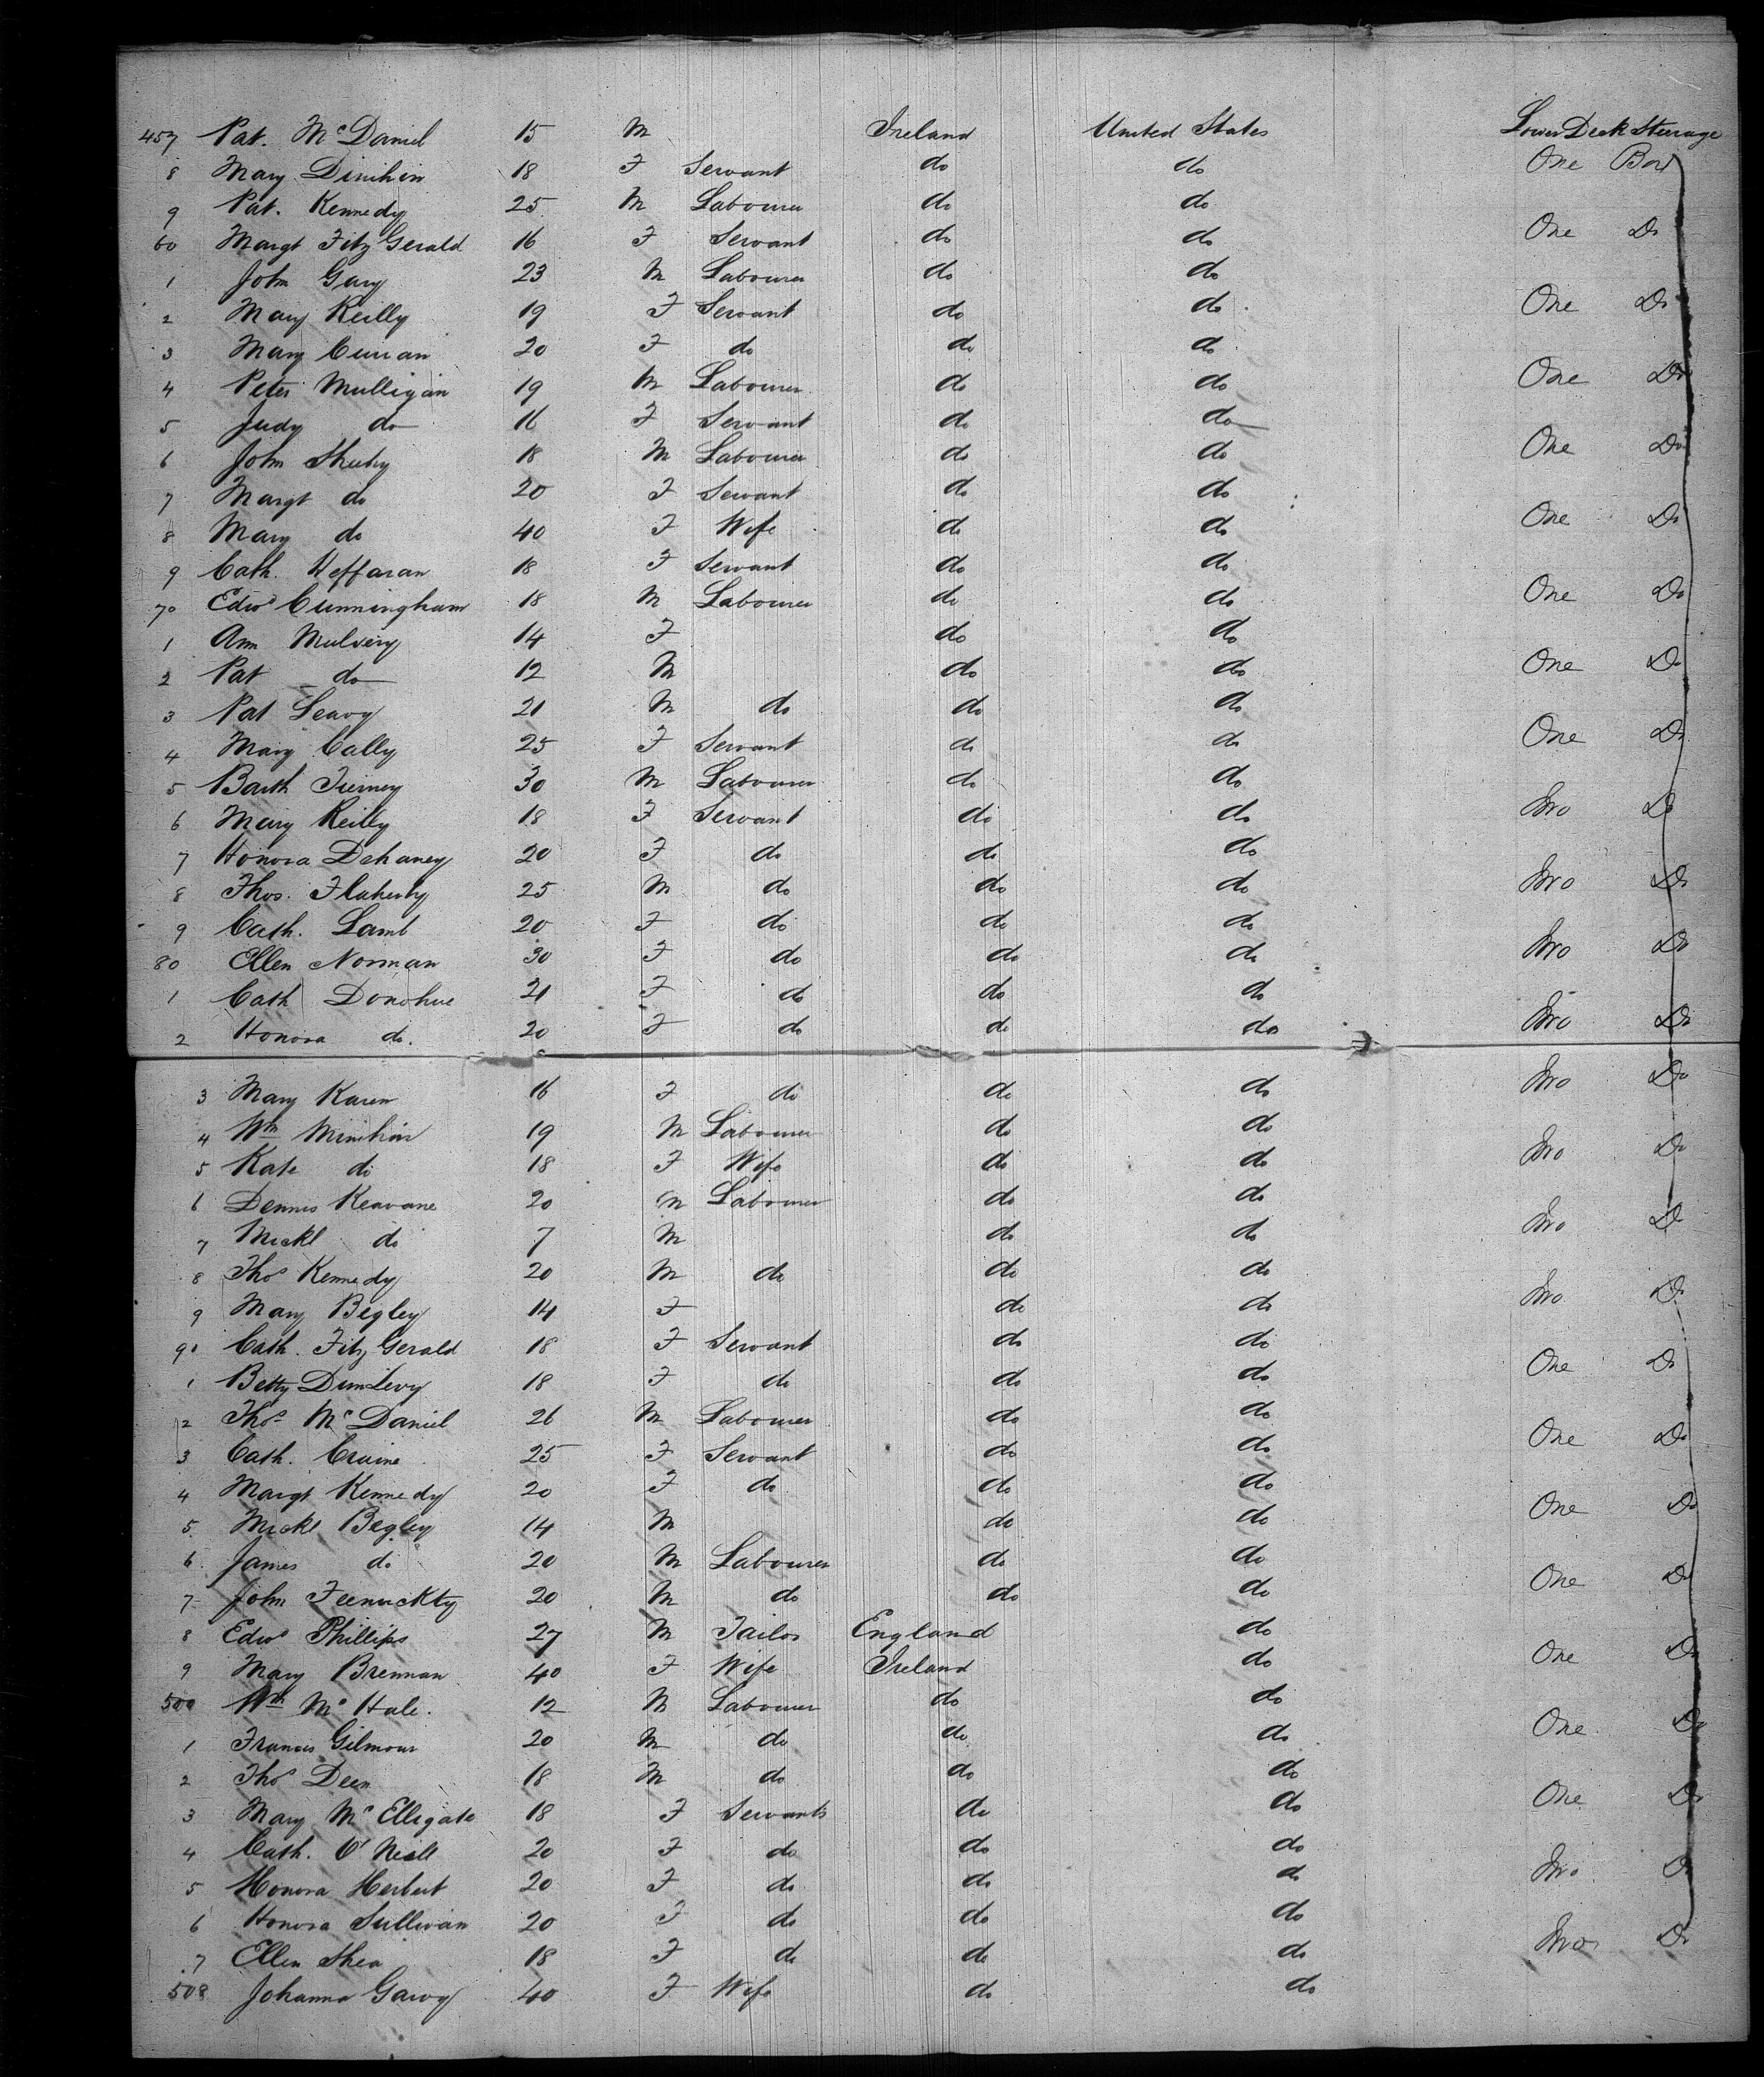 457 Pat. McDaniel 15 M Ireland United States Lower Deck Steerage
8 Mary Dinihin 18 F Servant do do One Box
9 Pat. Kennedy 25 M Labourer do do
60 Margt FitzGerald 16 F Servant do do One Do
1 John Gary 23 M Labourer do do
2 Mary Reilly 19 F Servant do do One Do
3 Mary Curran 20 F do do do
4 Peter Mulligan 19 M Labourer do do One Do
5 Judy do 16 F Servant do do
6 John Sheehy 18 M Labourer do do One Do
7 Margt do 20 F Servant do do
8 Mary do 40 F Wife do do One Do
9 Cath. Heffaran 18 F Servant do do
70 Edwd Cunningham 18 M Labourer do do One Do
1 Ann Mulviry 14 F do do
2 Pat do 12 M do do One Do
3 Pat Leavy 21 M do do do
4 Mary Cally 25 F Servant do do One Do
5 Barth Tierney 30 M Labourer do do
6 Mary Reilly 18 F Servant do do Two Do
7 Honora Dehaney 20 F do do do
8 Thos. Flaherty 25 M do do do Two Do
9 Cath. Lamb 20 F do do do
80 Ellen Norman 30 F do do do Two Do
1 Cath Donohue 21 F do do do
2 Honora do. 20 F do do do Two Do
3 Mary Karen 16 F do do do Two Do
4 Wm Minihin 19 M Labourer do do
5 Kate do 18 F Wife do do Two Do
6 Dennis Keavane 20 M Labourer do do
7 Mickl do 7 M do do Two Do
8 Thos Kennedy 20 M do do do
9 Mary Begley 14 F do do Two Do
90 Cath. FitzGerald 18 F Servant do do
1 Betty Dunlevy 18 F do do do One Do
2 Thos McDaniel 26 M Labourer do do
3 Cath. Cruine 25 F Servant do do One Do
4 Margt Kennedy 20 F do do do
5 Mickl Begley 14 M do do One Do
6 James do 20 M Labourer do do
7 John Feenuckty 20 M do do do One Do
8 Edwd Phillips 27 M Tailor England do
9 Mary Brennan 40 F Wife Ireland do One Do
500 Wm McHale. 12 M Labourer do do
1 Francis Gilmour 20 M do do do One Do
2 Thos Deen 18 M do do do
3 Mary McElligate 18 F Servants do do One Do
4 Cath. O'Neill 20 F do do do
5 Honora Herbert 20 F do do do Two Do
6 Honora Sullivan 20 F do do do
7 Ellen Shea 18 F do do do Two Do
508 Johanna Garvy 40 F Wife do do